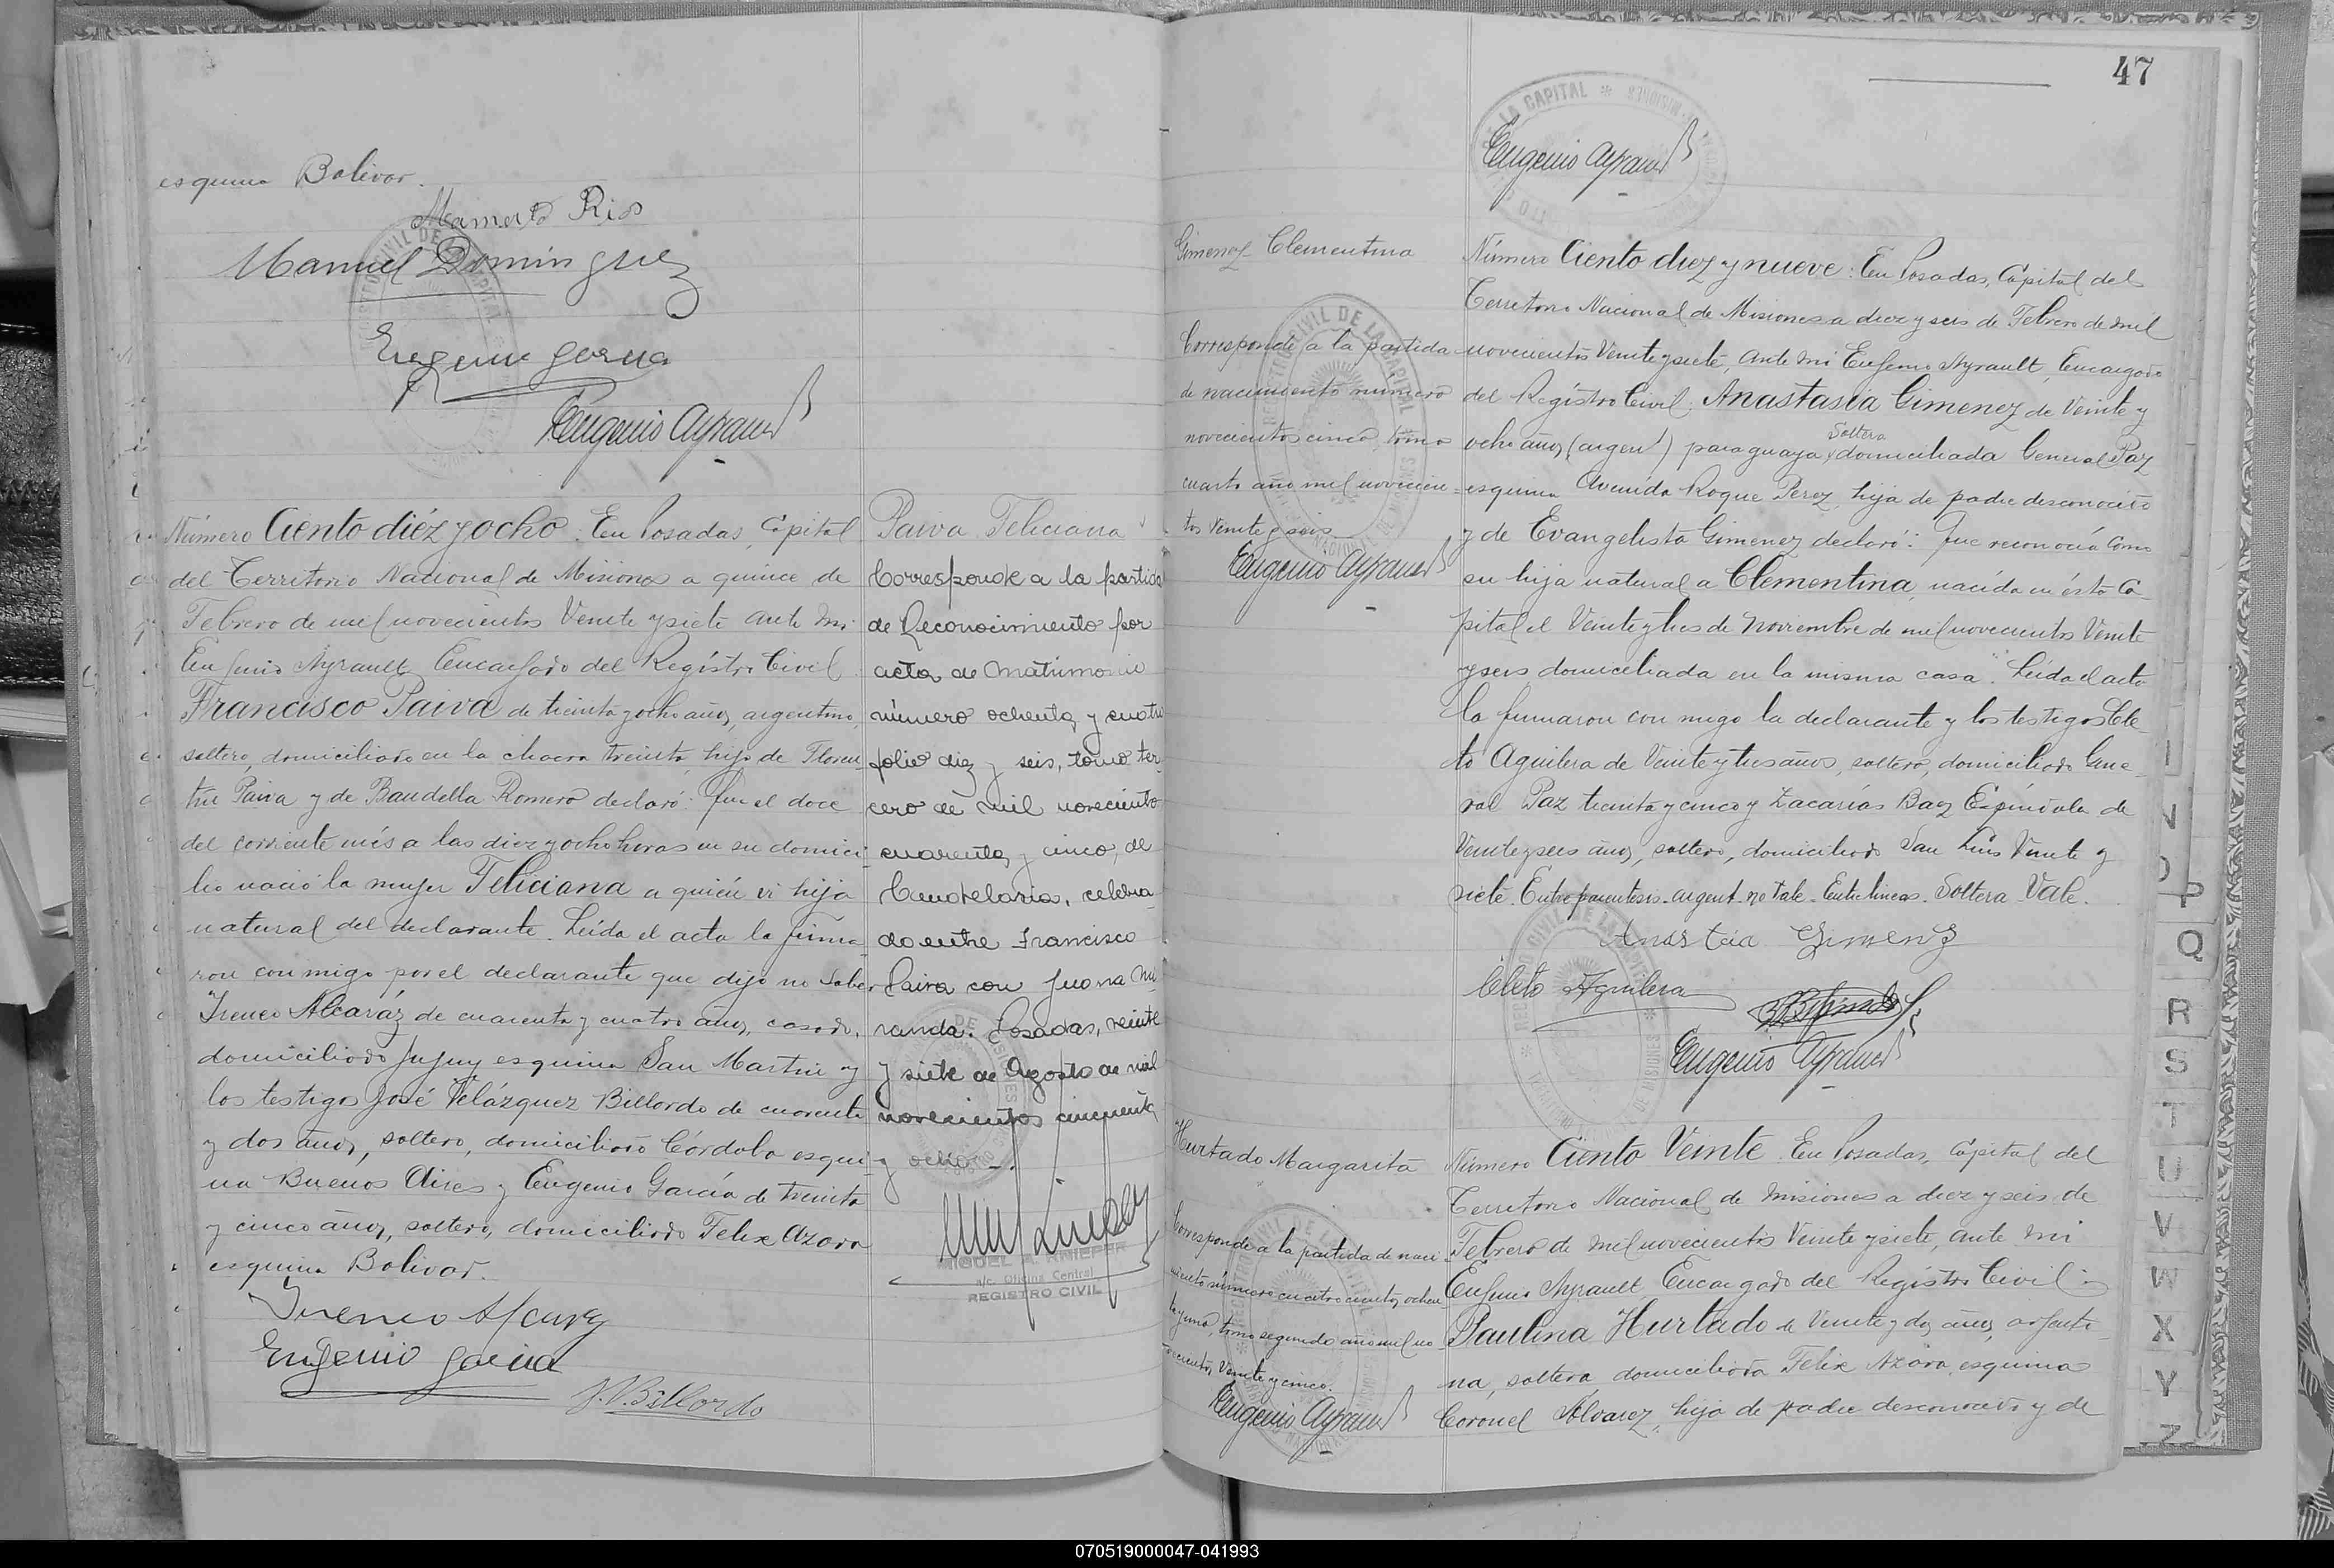 esquina Bolivar.
Mamerto Rios
Manuel Dominguez
Eugenio Garcia
Eugenio Ayrault
Número Ciento diéz y ocho: En Posadas, Capital
del Territorio Nacional de Misiones a quince de
Febrero de mil novecientos Veinte y siete ante mi
Eugenio Ayrault Encargado del Registro Civil:
Francisco Paiva de treinta y ocho años, argentino,
soltero, domiciliado en la chacra treinta, hijo de Floren-
tin Paiva y de Baudella Romero declaró: Que el doce
del corriente més a las diez y ocho horas en su domici-
lio nació la mujer Feliciana a quién vi hija
natural del declarante. Leída el acta la firma-
ron conmigo por el declarante que dijo no saber
Ireneo Alcaráz de cuarenta y cuatro años, casado,
domiciliado Jujuy esquina San Martin y
los testigos José Velázquez Billordo de cuarenta
y dos años, soltero, domiciliado Córdoba esqui-
na Buenos Aires y Eugenio García de treinta
y cinco años, soltero, domiciliado Felix Azara
esquina Bolivar.
Ireneo Alcaraz
Eugenio Garcia
J.V. Billordo
Paiva Feliciana
Corresponde a la partida
de Reconocimiento por
acta de Matrimonio
número ochenta y cuatro
folio diez y seis, tomo ter-
cero de mil novecientos
cuarenta y cinco, de
Candelaria, celebra-
do entre Francisco
Paiva con Juana Mi-
randa. Posadas, veinte
y siete de Agosto de mil
novecientos cincuenta
y ocho.-
MIGUEL A. RMIEPER
a/c. Oficina Central
REGISTRO CIVIL
47
Eugenio Ayrault
Gimenez Clementina
Corresponde a la partida
de nacimiento número
novecientos cinco, tomo
cuarto año mil novecien-
tos veinte y seis
Eugenio Ayrault
Número Ciento diez y nueve: En Posadas, Capital del
Territorio Nacional de Misiones a diez y seis de Febrero de mil
novecientos Veinte y siete, ante mi Eugenio Ayrault, Encargado
del Registro Civil: Anastasia Gimenez de Veinte y
Soltera
ocho años, (argent) paraguaya, domiciliada General Paz
esquina Avenida Roque Perez, hija de padre desconocido
y de Evangelista Gimenez declaró: Que reconocía como
su hija natural a Clementina, nacida en ésta Ca-
pital el Veinte y tres de Noviembre de mil novecientos Veinte
y seis domiciliada en la misma casa". Leída el acta
la firmaron con migo la declarante y los testigos Cle-
to Aguilera de Veinte y tres años, soltero, domiciliado Gene-
ral Paz treinta y cinco y Zacarías Baez Espíndola de
Veinte y seis años, soltero, domiciliado San Luis Veinte y
siete. Entre parentesis-argent-no Vale-Entre lineas-Soltera Vale.
Anastcia Gimenez
Cleto Aguilera
Eugenio Ayrault
Hurtado Margarita
Corresponde a la partida de naci-
miento número cuatrocientos ochen-
ta y uno, tomo segundo año mil no-
vecientos Veinte y cinco.
Eugenio Ayrault
Número Ciento Veinte: En Posadas, Capital del
Territorio Nacional de Misiones a diez y seis de
Febrero de mil novecientos Veinte y siete, ante mi
Eugenio Ayrault, Encargado del Registro Civil:
Paulina Hurtado de Veinte y dos años, argenti-
na, soltera domiciliada Felix Azara, esquina
Coronel Alvarez, hija de padre desconocido y de
I
N
P
Q
R
S
T
U
V
W
X
Y
Z
070519000047-041993